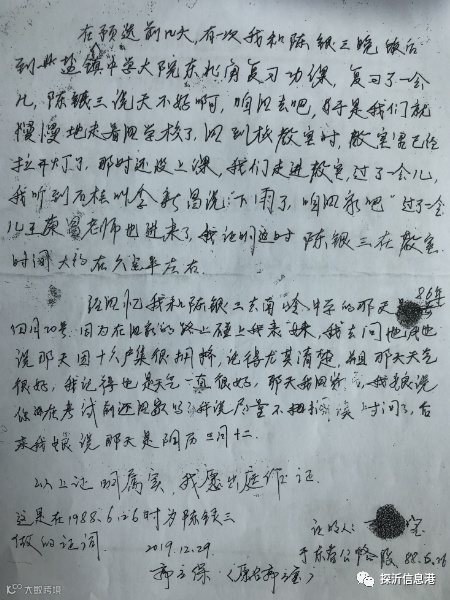 在预选前几天，有次我和陈银三晚饭后
到 盐镇中学大院东北角复习功课，复习了一会
儿，陈银三说天不好啊，咱回去吧，于是我们就
慢慢地走着回学校了，回到校教室时，教室里已经
拉开灯了，那时还没上课，我们走进教室，过了一会儿，
我听到石 叫会新昌说：“下雨了，咱回家吧”过了一会
儿 老师也进来了，我证明这时陈银三在教室
时间大约在六点半左右
经回忆我和陈银三去南 学的那天 86年
四月20号 因为在回家的路上碰上我表妹，我去问她
说那天因十六户集很拥挤，记得尤其清楚，但那天天气
很好，我记得也是天气一直很好，那天我回家 我娘说
你 在考试前还回家吗，我说尽量不 误时间了，后
来我娘说那天是阴历三月十二.
以上证明属实，我愿出庭作证.
这是在1988.6.26时为陈银三
做的证词
证明人：
2019.12.29
于东 公 段 88.6.26
郭立保（原名郭
大数跨境
探沂信息港